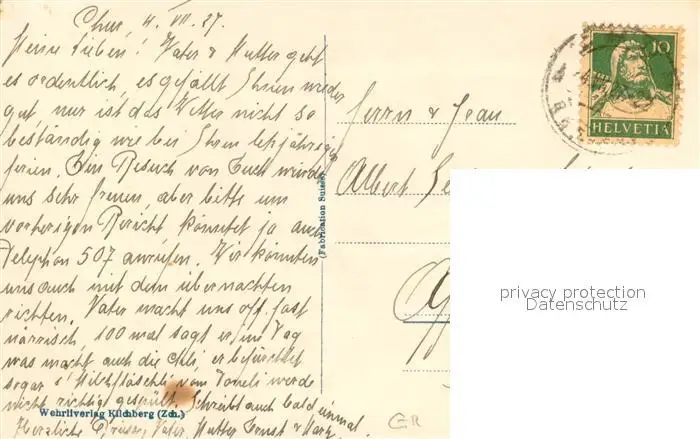 Chur, 4. VII. 27.
Meine Lieben! Vater & Mutter geht
es ordentlich, es gefällt Ihnen wieder
gut, nur ist das Wetter nicht so
beständig wie bei Ihren letztjährigen
Ferien. Ein Besuch von Euch würde
uns sehr freuen, aber bitte um
vorherigen Bericht könntet ja auch
Telephon 507 anrufen. Wir könnten
uns auch mit dem übernachten
richten. Vater macht uns oft fast
närrisch, 100 mal sagt er im Tag
was macht auch die er befürchtet
sogar s' Milchfläschli vom werde
nicht richtig gespült. Schreibt auch bald einmal
Herzliche Grüsse, Vater, Mutter Ernst &
Herrn & Frau
Albert
10
HELVETIA
(Fabrication Suisse)
Wehrliverlag Kilchberg (Zch.)
GR
privacy protection
Datenschutz